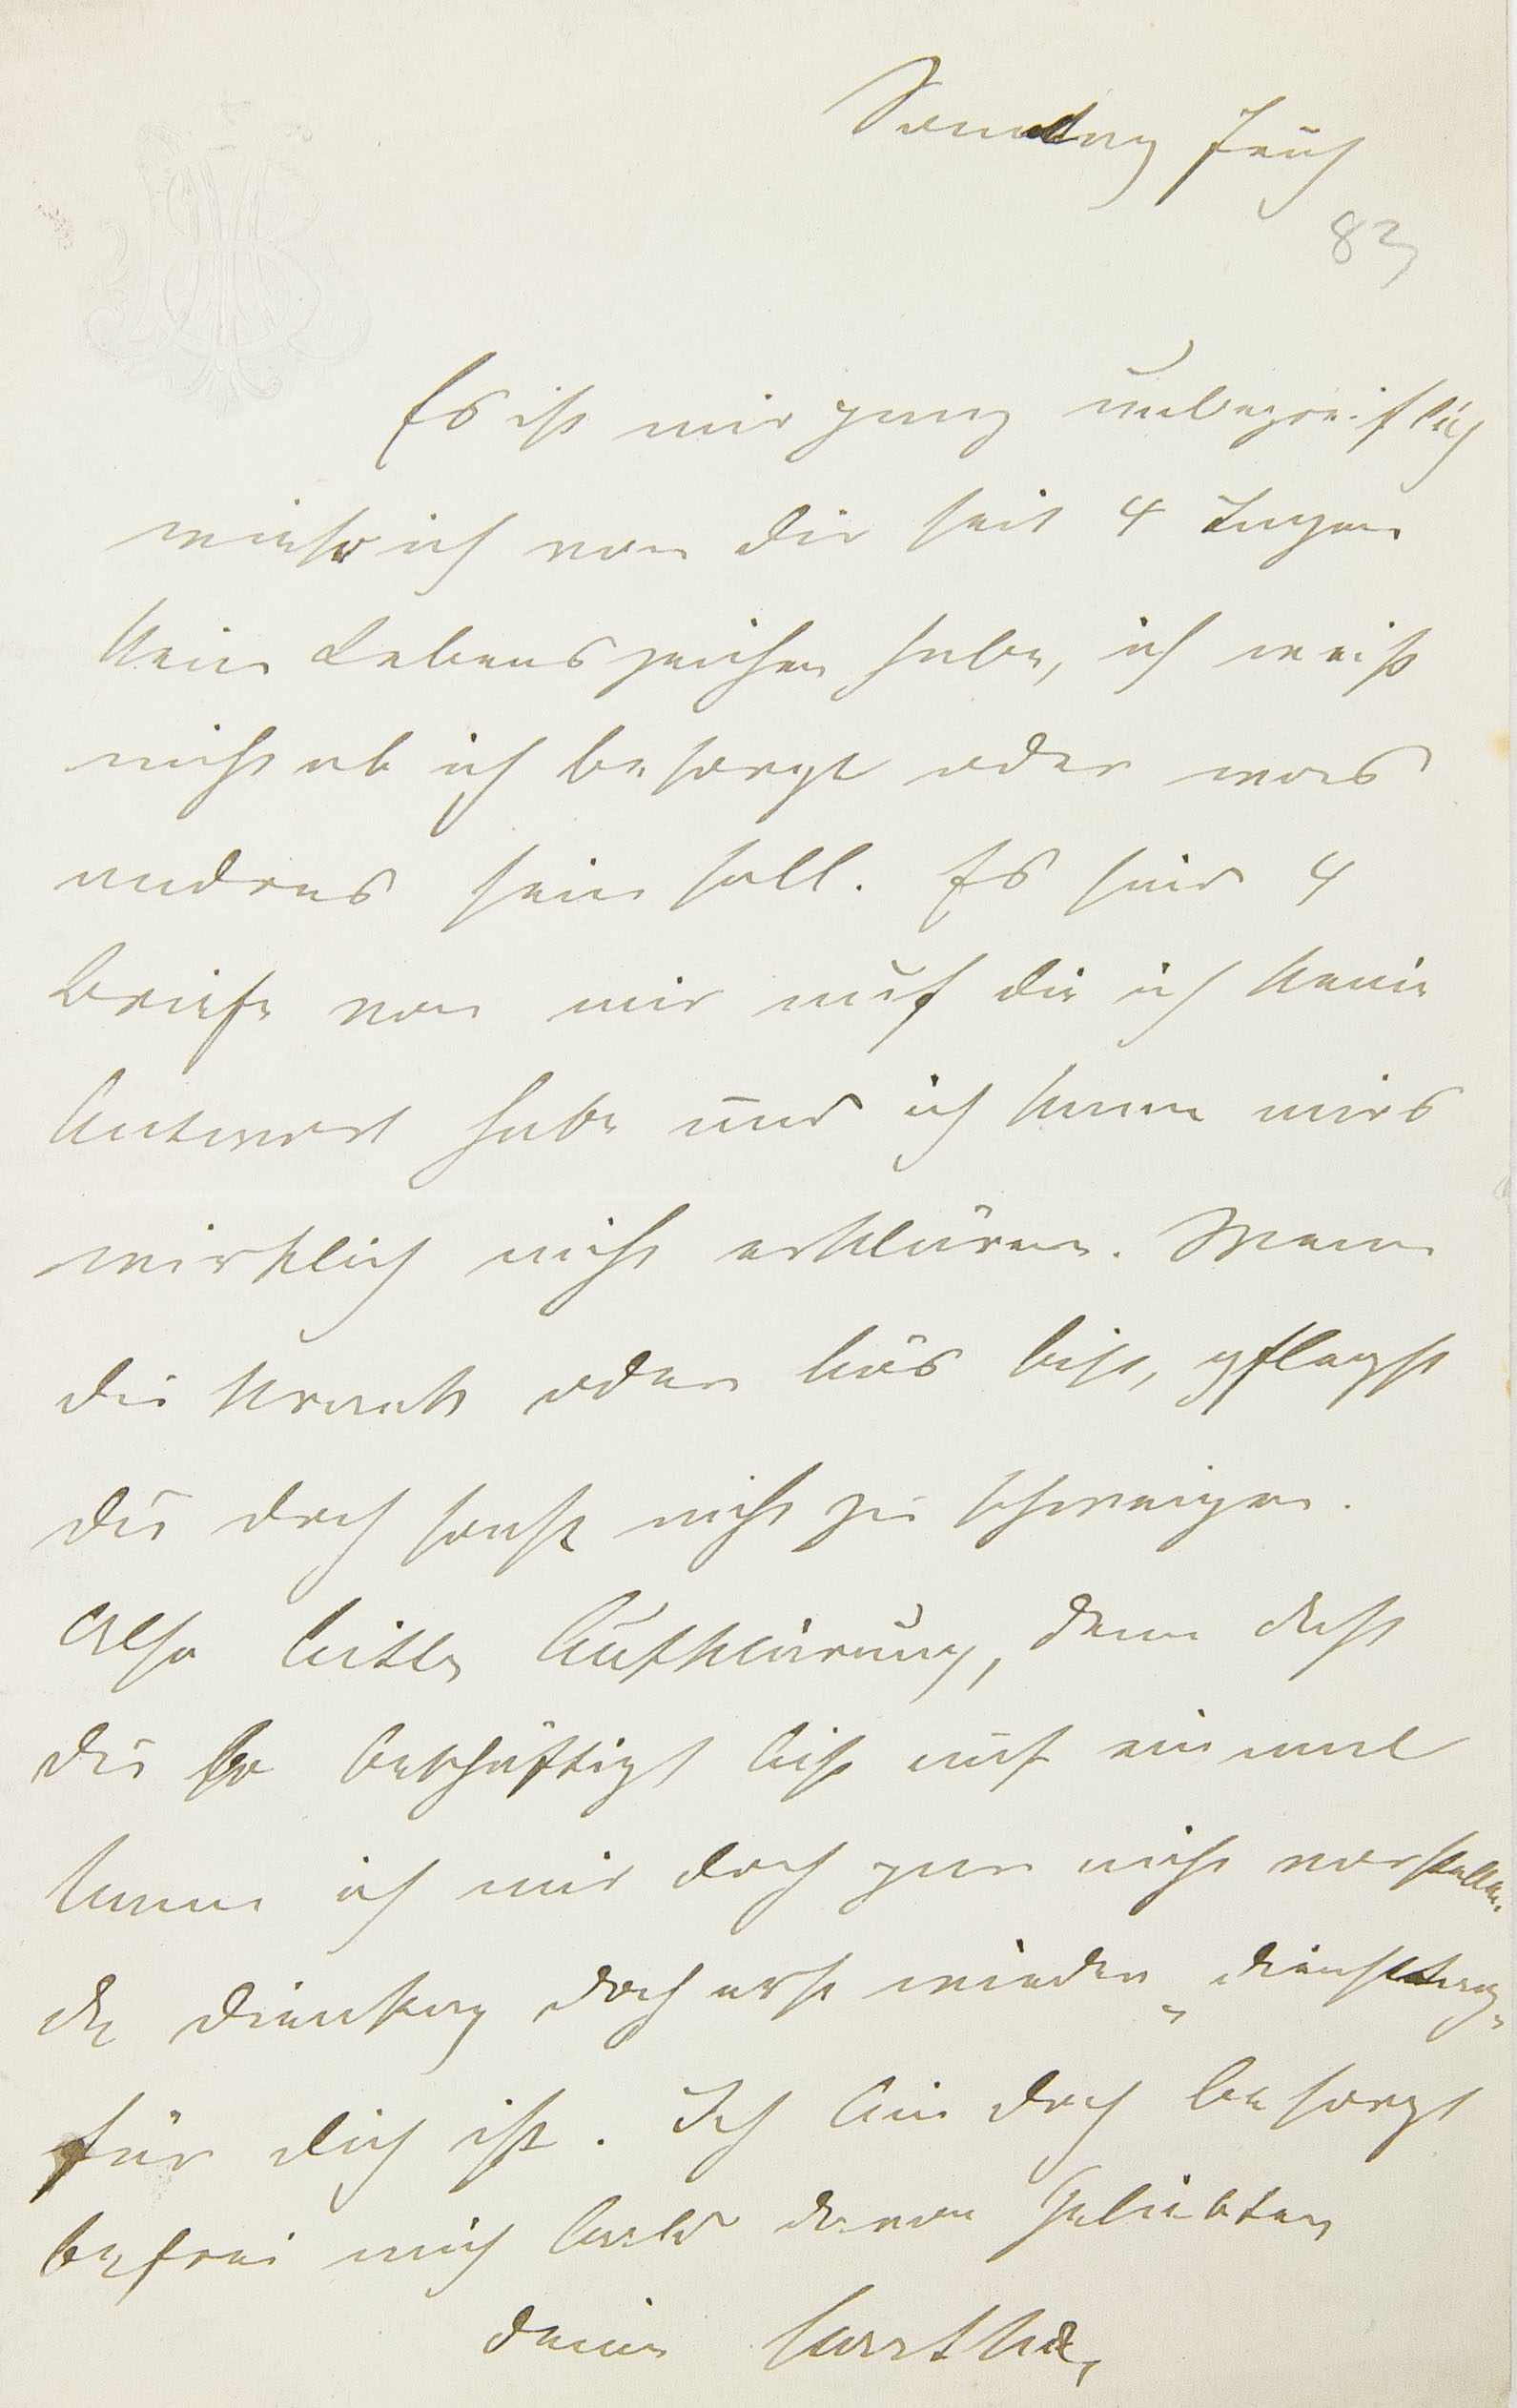 Sonntag Früh
83
Es ist mir ganz unbegreiflich
wieso ich von dir seit 4 Tagen
kein Lebenszeichen habe, ich weiß
nicht ob ich besorgt oder was
andres sein soll. Es sind 4
Briefe von mir auf die ich keine
Antwort habe und ich kann mirs
wirklich nicht erklären. Wenn
du krank oder bös bist, pflegst
du doch sonst nicht zu schweigen.
Also bitte Aufklärung, denn daß
du so beschäftigt bist auf einmal
kann ich mir doch gar nicht vorstellen.
da Dienstag doch erst wieder „Diensttag„
für dich ist. Ich bin doch besorgt
befrei mich bald davon Geliebter
deine